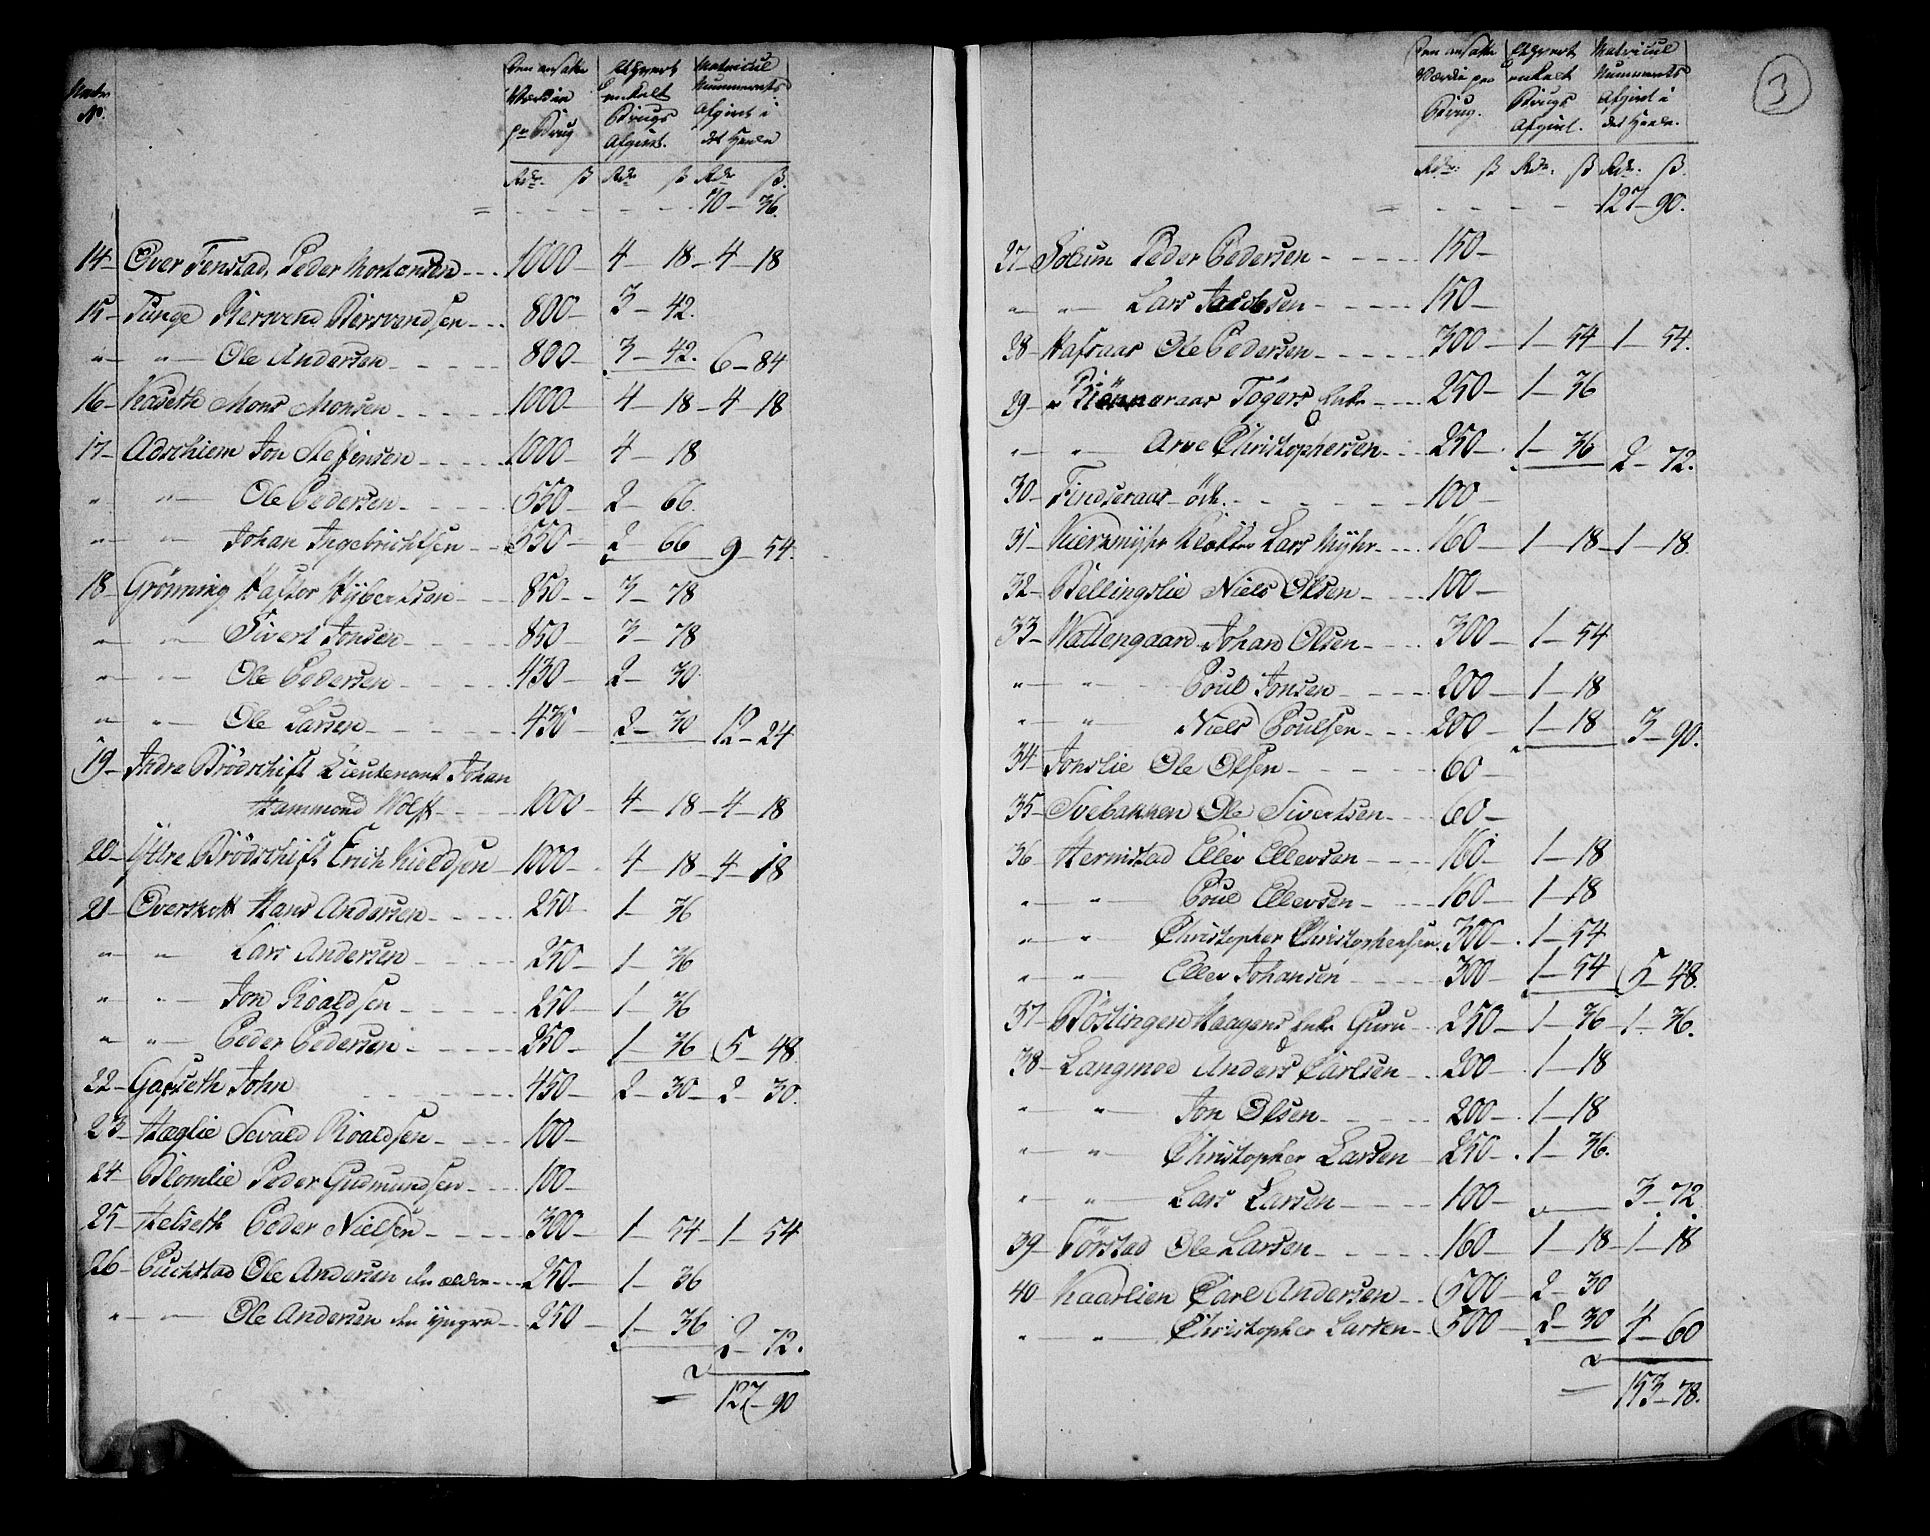 Matr. No.
Den ansatte Værdie pr Brug
Ethvert enkelt Brugs Afgivt.
Matricul Nummerets Afgivt i det Heele
Rdr. ß Rdr ß Rdr ß.
= 70 - 36.
14 - Over Fenstad, Peder Mortensen - 1000 - 4 - 18 - 4 - 18
15 - Tunge Bersvend Bersvendsen - 800 - 3 - 42.
" " Ole Andersen - 800 - 3 - 42. 6 - 84
16 - Kadeth Mons Monsen - 1000 - 4 - 18 - 4 - 18
17 - Adschiem Jon Steffensen - 1000 - 4 - 18
" " Ole Pedersen - 550 - 2 - 66.
" " Johan Ingebrichtsen - 550 - 2 - 66 9 - 54.
18 - Grönning Haftor Hybertsen - 850 - 3 - 78
" " Sivert Jonsen - 850 - 3 - 78
" " Ole Pedersen - 430 - 2 - 30
" " Ole Larsen - 430 - 2 - 30 12 - 24
19 - Indre Brödschift Lieutenant Johan
Hammond Wolff - 1000 - 4 - 18 - 4 - 18
20 - Ÿttre Brödschift Erich Kieldsen - 1000 - 4 - 18 - 4 - 18
21 - Overskott Hans Andersen - 250 - 1 - 36
" " Lars Andersen - 250 - 1 - 36
" " Jon Roaldsen - 250 - 1 - 36
" " Peder Pedersen - 250 - 1 - 36 5 - 48
22 - Gafseth John 450 - 2 - 30 - 2 - 30.
23 - Hæglie Sevald Roaldsen - 100 -
24 - Blomlie Peder Gudmundsen - 100 -
25 - Helseth Peder Nielsen - 300 - 1 - 54 - 1 - 54
26 - Puchstad Ole Andersen den ældre - 250 - 1 - 36
" " Ole Andersen den yngre - 250 - 1 - 36 2 - 72.
= 127 - 90
3
Den ansatte Værdie pr Brug.
Ethvert enkelt Brugs Afgivt.
Matricul Nummerets Afgivt i det Heele.
Rdr. ß Rdr. ß Rdr. ß.
= 127 - 90.
27 - Solum Peder Pedersen - 150 -
" " Lars Jacobsen - 150 -
28 - Hafraas Ole Pedersen - 300 - 1 - 54 1 - 54.
29 - Rönneraas Tögers Enke - 250 - 1 - 36
" " Arve Christophersen - 250 - 1 - 36 2 - 72.
30 - Findseraas - öde. - 100 -
31 - Kierkmyhr Klokker Lars Myhr - 160 - 1 - 18 - 1 - 18
32 - Bellingslie Niels Olsen - 100 -
33 - Wattengaard Johan Olsen - 300 - 1 - 54
" " Poul Jonsen - 200 - 1 - 18
" " Niels Poulsen - 200 - 1 - 18 3 - 90.
34 - Jonslie Ole Olsen - 60 -
35 - Svebakken Ole Sivertsen - 60 -
36 - Hernistad Ellev Ellevsen - 160 - 1 - 18
" " Poul Ellevsen - 160 - 1 - 18
" " Christopher Christophersen 300 - 1 - 54
" " Ellev Johansen - 300 - 1 - 54 5 - 48.
37 - Böslingen Haagens Enke Guru - 250 - 1 - 36 - 1 - 36.
38 - Langmoe Anders Carlsen - 200 - 1 - 18
" " Jon Olsen - 200 - 1 - 18
" " Christopher Larsen - 250 - 1 - 36.
" " Lars Larsen - 100 - 3 - 72
39 - Törstad Ole Larsen - 160 - 1 - 18 - 1 - 18
40 - Kaarlien Carl Andersen - 500 - 2 - 30
" " Christopher Larsen - 500 - 2 - 30 4 - 60
= 153 - 78.